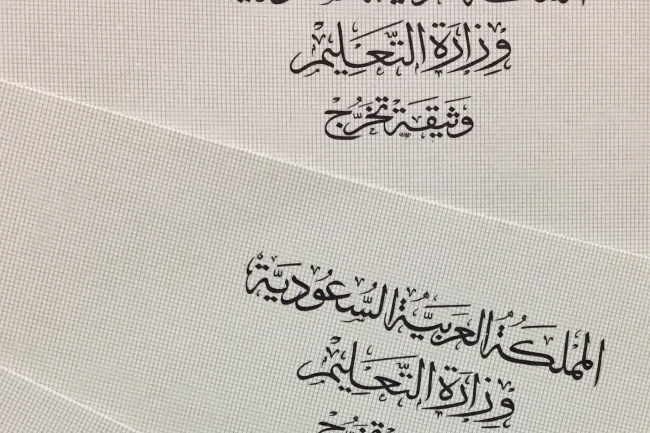 وزارة التعليم
وثيقة تخرج
المملكة العربية السعودية
وزارة التعليم